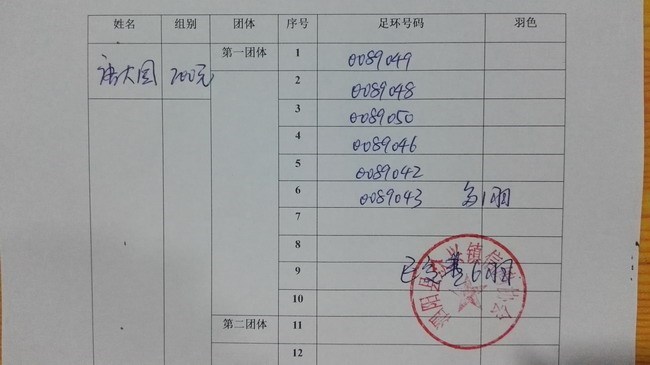 姓名 组别 团体 序号 足环号码 羽色
唐大国 200元 第一团体 1 0089049
2 0089048
3 0089050
4 0089046
5 0089042
6 0089043
7
8
9
10
第二团体 11
12